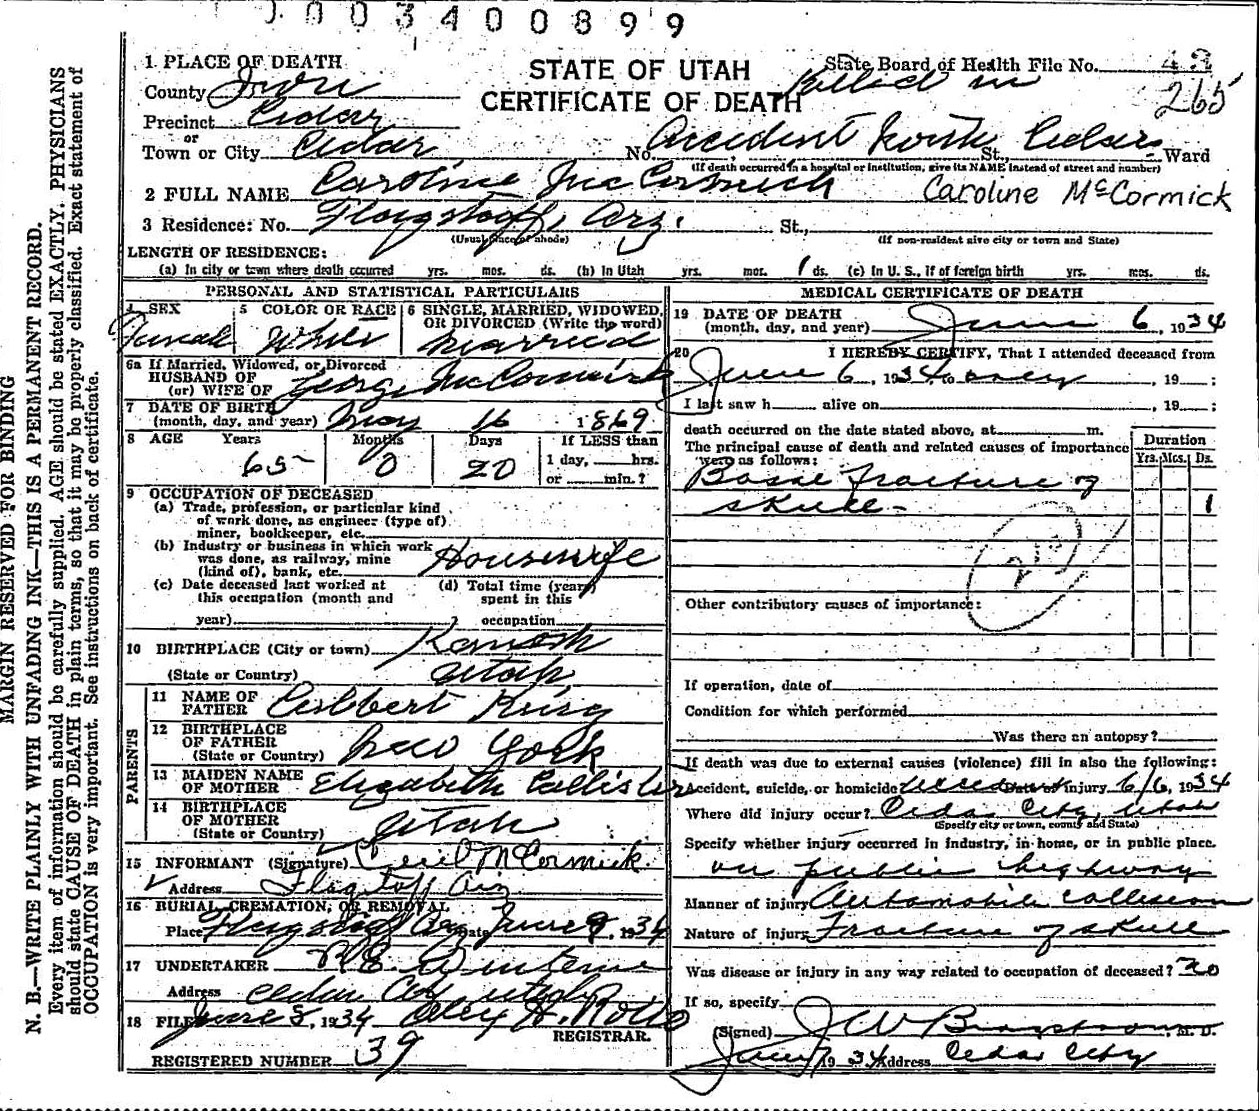 0003400899
STATE OF UTAH
CERTIFICATE OF DEATH
State Board of Health File No. 43
265
1 PLACE OF DEATH
County Iron
Precinct Cedar
or
Town or City Cedar
Killed in
No. Accident North Cedar St., Ward
(If death occurred in a hospital or institution, give its NAME instead of street and number)
2 FULL NAME Caroline McCormick
Caroline McCormick
3 Residence: No. Flagstaff, Arz. St.,
(Usual place of abode) (If non-resident give city or town and State)
LENGTH OF RESIDENCE:
(a) In city or town where death occurred yrs. mos. ds. (b) In Utah yrs. mos. 1 ds. (c) In U. S., if of foreign birth yrs. mos. ds.
PERSONAL AND STATISTICAL PARTICULARS
4 SEX Female
5 COLOR OR RACE White
6 SINGLE, MARRIED, WIDOWED, OR DIVORCED (Write the word) Married
6a If Married, Widowed, or Divorced
HUSBAND OF
(or) WIFE OF George McCormick
7 DATE OF BIRTH
(month, day, and year) May 16 1869
8 AGE Years 65 Months 0 Days 20
If LESS than
1 day, hrs.
or min.?
9 OCCUPATION OF DECEASED
(a) Trade, profession, or particular kind
of work done, as engineer (type of)
miner, bookkeeper, etc.
(b) Industry or business in which work
was done, as railway, mine
(kind of), bank, etc. Housewife
(c) Date deceased last worked at
this occupation (month and
year)
(d) Total time (years)
spent in this
occupation
10 BIRTHPLACE (City or town) Kanosh
(State or Country) Utah
PARENTS
11 NAME OF
FATHER Culbert King
12 BIRTHPLACE
OF FATHER
(State or Country) New York
13 MAIDEN NAME
OF MOTHER Elizabeth Callister
14 BIRTHPLACE
OF MOTHER
(State or Country) Utah
15 INFORMANT (Signature) Cecil McCormick
Address Flagstaff Ariz
16 BURIAL, CREMATION, OR REMOVAL
Place Flagstaff Date June 9, 1934
17 UNDERTAKER
Address Cedar City Utah
18 FILED June 8, 1934 Alex H. Rollo
REGISTRAR.
REGISTERED NUMBER 39
MEDICAL CERTIFICATE OF DEATH
19 DATE OF DEATH
(month, day, and year) June 6, 1934
20 I HEREBY CERTIFY, That I attended deceased from
June 6, 1934, to only, 19 ;
I last saw h alive on , 19 ;
death occurred on the date stated above, at m.
The principal cause of death and related causes of importance
were as follows:
Duration
Yrs. Mos. Ds.
Basal fracture of
skull - 1
Other contributory causes of importance:
If operation, date of
Condition for which performed
Was there an autopsy?
If death was due to external causes (violence) fill in also the following:
Accident, suicide, or homicide accident Date of injury 6/6, 1934
Where did injury occur? Cedar City, Utah
(Specify city or town, county and State)
Specify whether injury occurred in industry, in home, or in public place.
on public highway
Manner of injury Automobile collision
Nature of injury Fracture of skull
Was disease or injury in any way related to occupation of deceased? no
If so, specify
(Signed) M. D.
June 7 1934 Address Cedar City
MARGIN RESERVED FOR BINDING
N. B.—WRITE PLAINLY WITH UNFADING INK—THIS IS A PERMANENT RECORD.
Every item of information should be carefully supplied. AGE should be stated EXACTLY. PHYSICIANS
should state CAUSE OF DEATH in plain terms, so that it may be properly classified. Exact statement of
OCCUPATION is very important. See instructions on back of certificate.